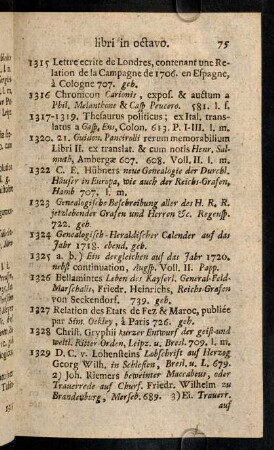 libri in octavo. 75
1315 Lettre ecrite de Londres, contenant une Re-
lation de la Campagne de 1706. en Espagne,
à Cologne 707. geb.
1316 Chronicon Carionis, expos. & auctum a
Phil. Melanthone & Casp Peucero. 581. l. s.
1317-1319. Thesaurus politicus; ex Ital. transla-
tus a Gasp. Ens, Colon. 613. P. I-III. l. m.
1320. 21. Guidon. Panciroli rerum memorabilium
Libri II. ex translat. & cum notis Henr. Sal-
muth, Ambergæ 607. 608. Voll. II. l. m.
1322 C. E. Hübners neue Genealogie der Durchl.
Häuser in Europa, wie auch der Reichs-Grafen,
Hamb 707. l. m.
1323 Genealogische Beschreibung aller des H. R. R.
jetzlebender Grafen und Herren &c. Regensp.
722. geb.
1324 Genealogisch-Heraldischer Calender auf das
Jahr 1718. ebend. geb.
1325 a. b.) Ein dergleichen auf das Jahr 1720.
nebst continuation, Augsp. Voll. II. Papp.
1326 Bellamintes Leben des Kayserl. General-Feld-
Marschalls, Friedr. Heinrichs, Reichs-Grafen
von Seckendorf. 739. geb.
1327 Relation des Etats de Fez & Maroc, publiée
par Sim. Ockley, à Paris 726. geb.
1328 Christ. Gryphii kurzer Entwurf der geist-und
weltl. Ritter-Orden, Leipz. u. Bresl. 709. l. m.
1329 D. C. v. Lohensteins Lobschrift auf Herzog
Georg Wilh. in Schlesien, Bresl. u. L. 679.
2) Joh. Riemers beweinter Maccabeus, oder
Trauerrede auf Churf. Friedr. Wilhelm zu
Brandenburg, Merseb. 689. 3) Ei. Trauerr.
auf